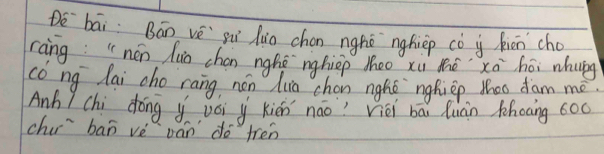 Đề bài: Bàn về sự lựa chọn nghề nghiệp có ý kiến cho
rằng: "nên lựa chọn nghề nghiệp theo xu thế xã hội nhưng
có ng lại cho rằng nên lựa chọn nghề nghiệp theo đam mê.
Anh / Chị đồng ý với ý kiến nào? viết bài luận khoảng 600
chữ bàn về vấn đề trên